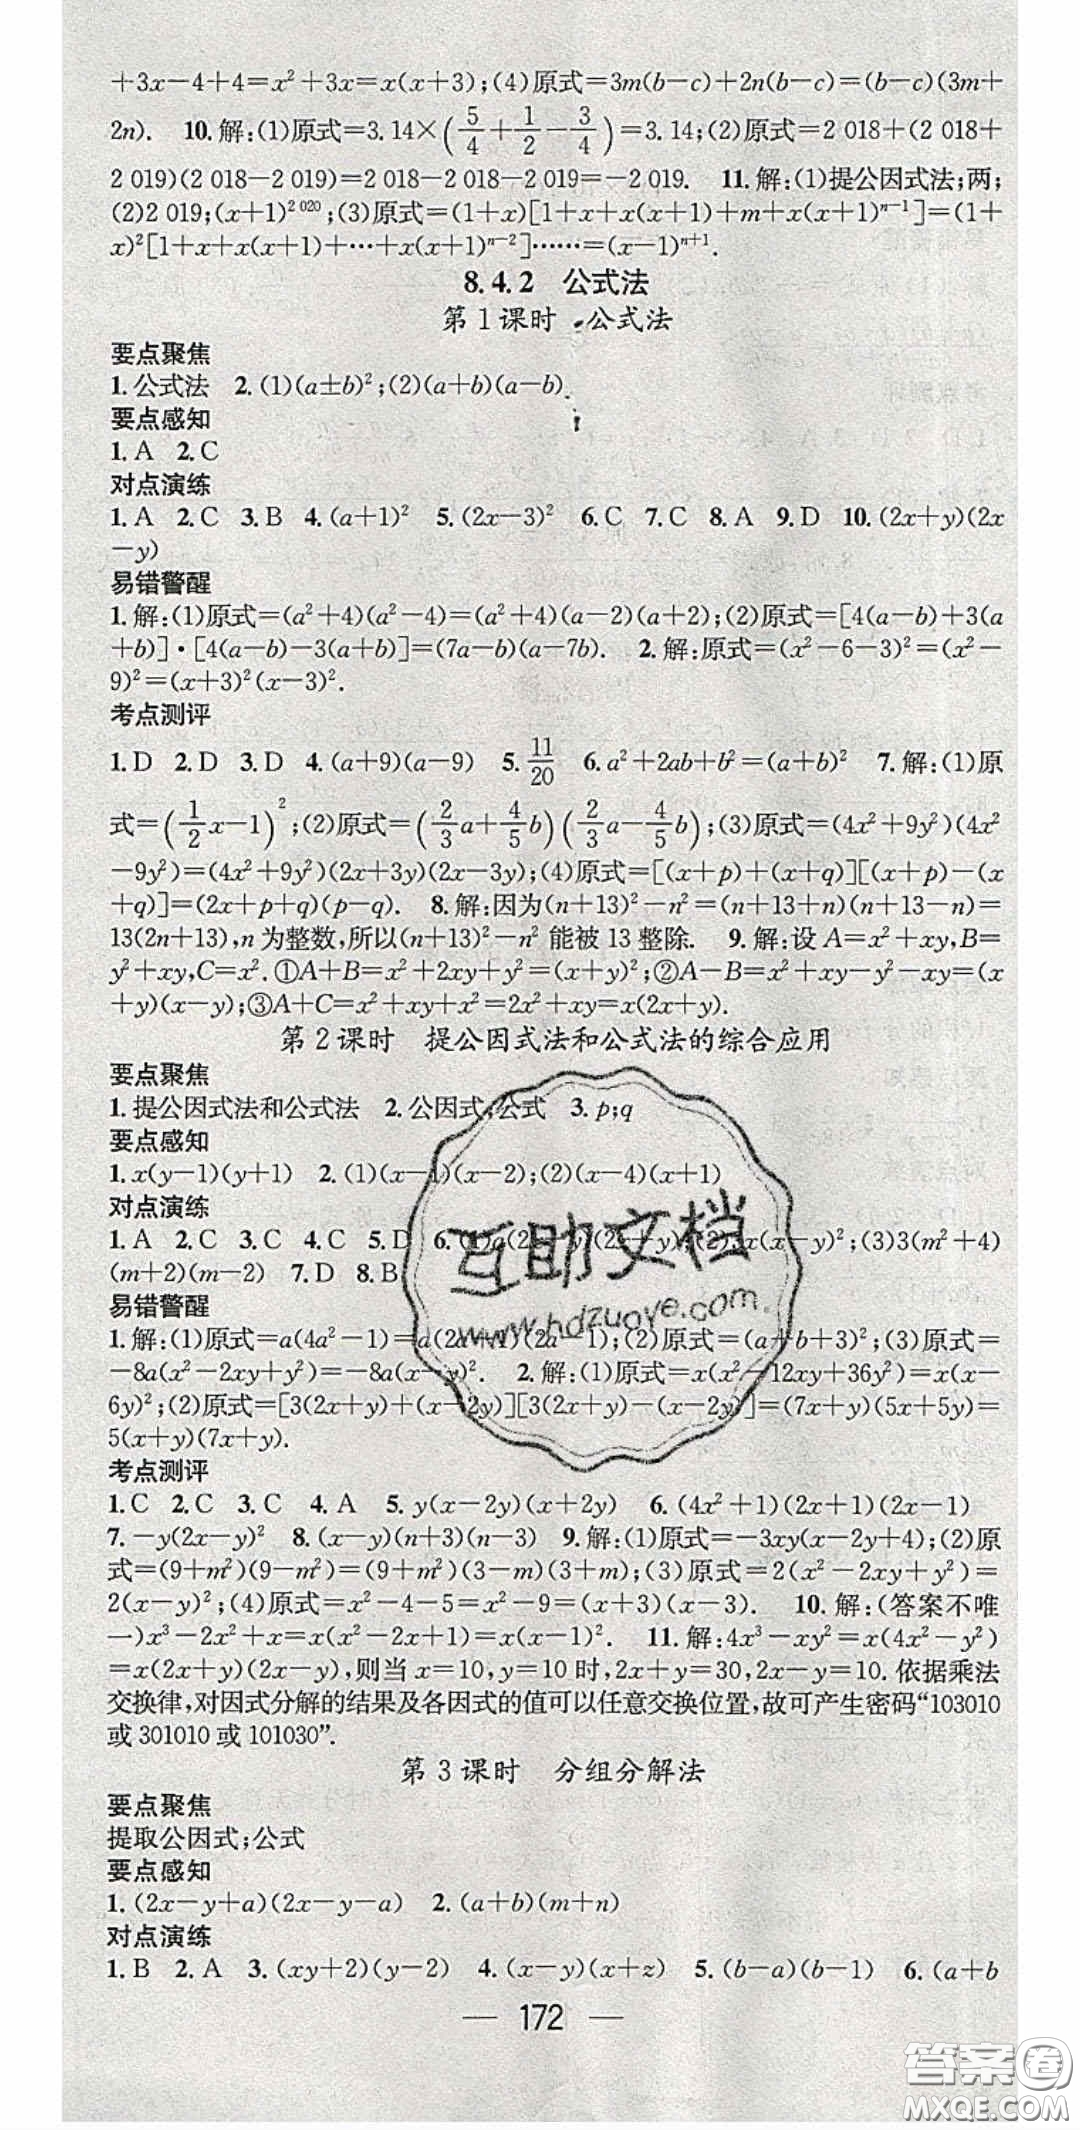 +3x−4+4=x²+3x=x(x+3);(4)原式=3m(b−c)+2n(b−c)=(b−c)(3m+
2n). 10.解:(1)原式=3.14×(5/4+1/2−3/4)=3.14;(2)原式=2 018+(2 018+
2 019)(2 018−2 019)=2 018−2 018−2 019=−2 019. 11.解:(1)提公因式法;两;
(2)2 019;(x+1)^{2 020};(3)原式=(1+x)[1+x+x(x+1)+m+x(x+1)^{n−1}]=(1+
x)²[1+x+x(x+1)+…+x(x+1)^{n−2}]……=(x−1)^{n+1}.
8.4.2 公式法
第1课时 公式法
要点聚焦
1.公式法 2.(1)(a±b)²;(2)(a+b)(a−b)
要点感知
1.A 2.C
对点演练
1.A 2.C 3.B 4.(a+1)² 5.(2x−3)² 6.C 7.C 8.A 9.D 10.(2x+y)(2x
−y)
易错警醒
1.解:(1)原式=(a²+4)(a²−4)=(a²+4)(a−2)(a+2);(2)原式=[4(a−b)+3(a
+b)]·[4(a−b)−3(a+b)]=(7a−b)(a−7b). 2.解:原式=(x²−6−3)²=(x²−
9)²=(x+3)²(x−3)².
考点测评
1.D 2.D 3.D 4.(a+9)(a−9) 5.11/20 6.a²+2ab+b²=(a+b)² 7.解:(1)原
式=(1/2x−1)²;(2)原式=(2/3a+4/5b)(2/3a−4/5b);(3)原式=(4x²+9y²)(4x²
−9y²)=(4x²+9y²)(2x+3y)(2x−3y);(4)原式=[(x+p)+(x+q)][(x+p)−(x
+q)]=(2x+p+q)(p−q). 8.解:因为(n+13)²−n²=(n+13+n)(n+13−n)=
13(2n+13),n为整数,所以(n+13)²−n²能被13整除. 9.解:设A=x²+xy,B=
y²+xy,C=x².①A+B=x²+2xy+y²=(x+y)²;②A−B=x²+xy−y²−xy=(x
+y)(x−y);③A+C=x²+xy+x²=2x²+xy=x(2x+y).
第2课时 提公因式法和公式法的综合应用
要点聚焦
1.提公因式法和公式法 2.公因式;公式 3.p;q
要点感知
1.x(y−1)(y+1) 2.(1)(x−1)(x−2);(2)(x−4)(x+1)
对点演练
1.A 2.A 3.C 4.C 5.D 6.(1)a(2x−y)(2x+y);(2)x(x−y)²;(3)3(m²+4)
(m+2)(m−2) 7.D 8.B
易错警醒
1.解:(1)原式=a(4a²−1)=a(2a+1)(2a−1);(2)原式=(a+b+3)²;(3)原式=
−8a(x²−2xy+y²)=−8a(x−y)². 2.解:(1)原式=x(x²−12xy+36y²)=x(x−
6y)²;(2)原式=[3(2x+y)+(x−2y)][3(2x+y)−(x−2y)]=(7x+y)(5x+5y)=
5(x+y)(7x+y).
考点测评
1.C 2.C 3.C 4.A 5.y(x−2y)(x+2y) 6.(4x²+1)(2x+1)(2x−1)
7.−y(2x−y)² 8.(x−y)(n+3)(n−3) 9.解:(1)原式=−3xy(x−2y+4);(2)原
式=(9+m²)(9−m²)=(9+m²)(3−m)(3+m);(3)原式=2(x²−2xy+y²)=
2(x−y)²;(4)原式=x²−4−5=x²−9=(x+3)(x−3). 10.解:(答案不唯
一)x³−2x²+x=x(x²−2x+1)=x(x−1)². 11.解:4x³−xy²=x(4x²−y²)
=x(2x+y)(2x−y),则当x=10,y=10时,2x+y=30,2x−y=10.依据乘法
交换律,对因式分解的结果及各因式的值可以任意交换位置,故可产生密码“103010
或301010或101030”.
第3课时 分组分解法
要点聚焦
提取公因式;公式
要点感知
1.(2x−y+a)(2x−y−a) 2.(a+b)(m+n)
对点演练
1.B 2.A 3.(xy+2)(y−2) 4.(x−y)(x+z) 5.(b−a)(b−1) 6.(a+b
— 172 —
互助文档
www.hdzuoye.com
答案圈
MXQE.COM